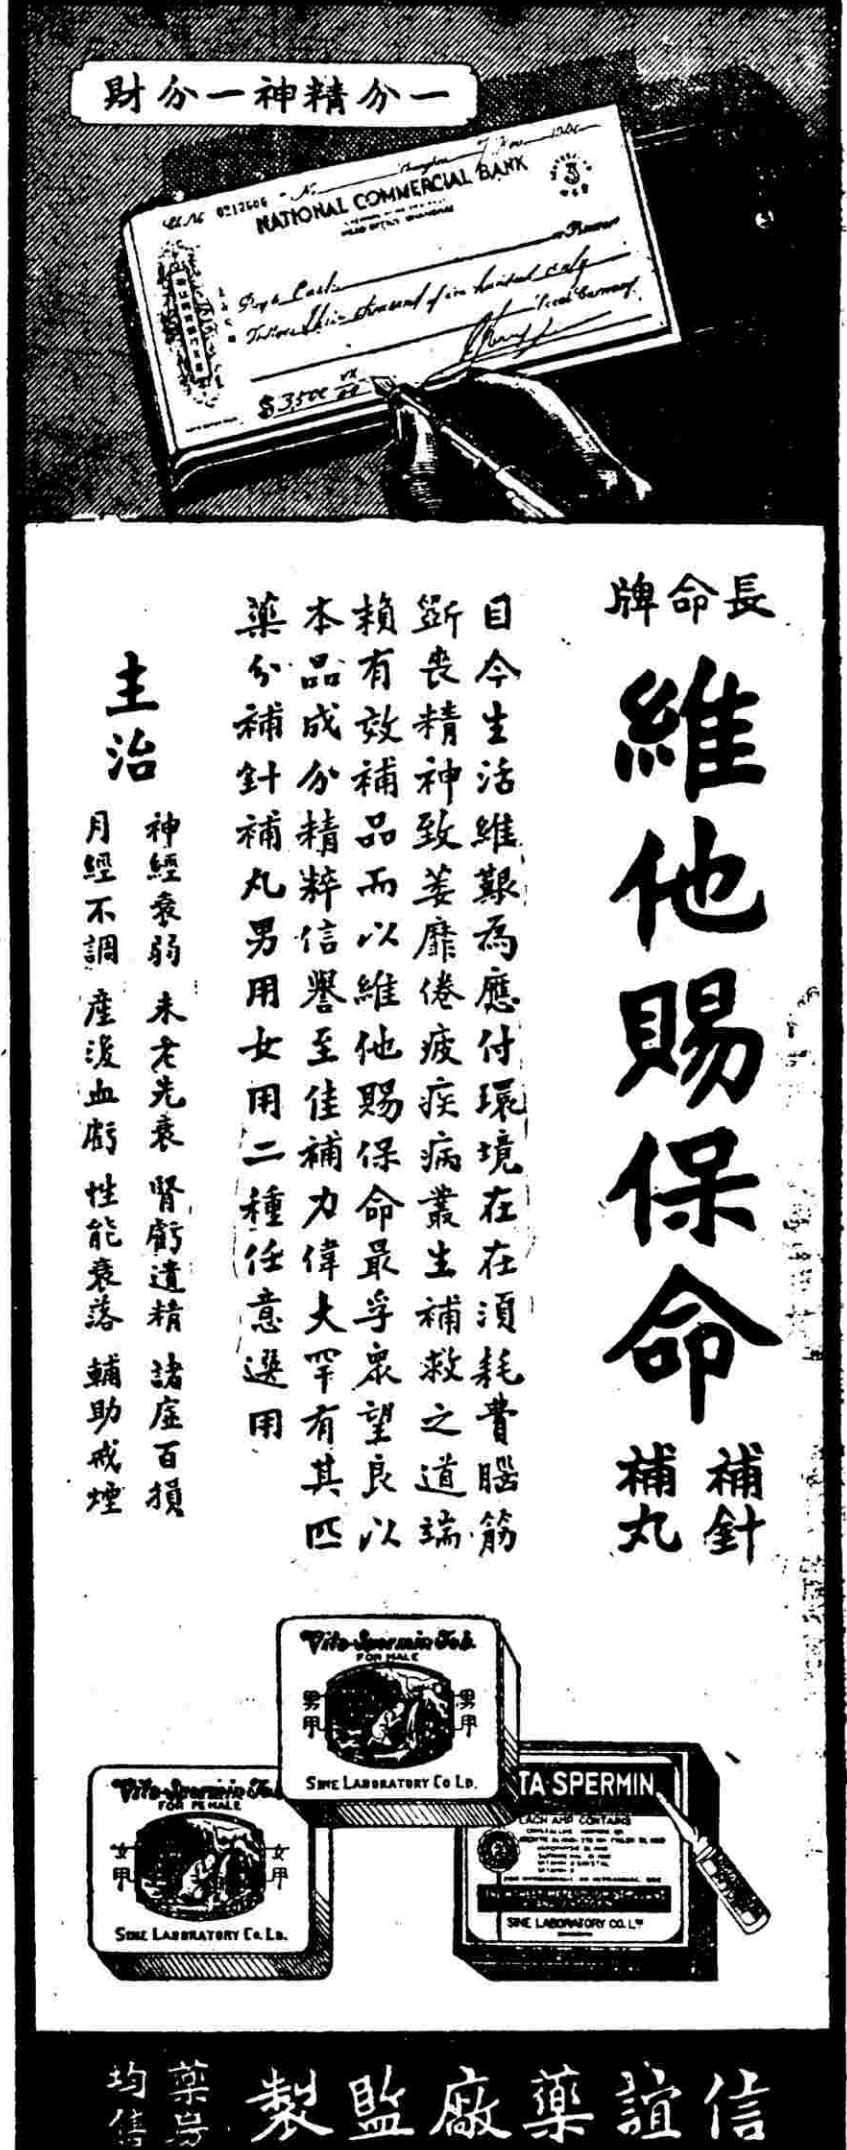 一分精神一分財
NATIONAL COMMERCIAL BANK
HEAD OFFICE SHANGHAI
0212606
Pay to Cash
Local Currency
$3500
長命牌
維他賜保命
補針
補丸
目今生活維艱為應付環境在在須耗費腦筋
斲喪精神致萎靡倦疲疾病叢生補救之道端
賴有效補品而以維他賜保命最孚眾望良以
本品成分精粹信譽至佳補力偉大罕有其匹
藥分補針補丸男用女用二種任意選用
主治
神經衰弱 未老先衰 腎虧遺精 諸虛百損
月經不調 產後血虧 性能衰落 輔助戒煙
Vita-Spermin Tab.
FOR MALE
男用
男用
SINE LABORATORY CO LD.
Vita-Spermin Tab.
FOR FEMALE
女用
女用
SINE LABORATORY CO. LD.
TA-SPERMIN
EACH AMP CONTAINS
SINE LABORATORY CO. LTD
信誼藥廠監製
藥房
均售